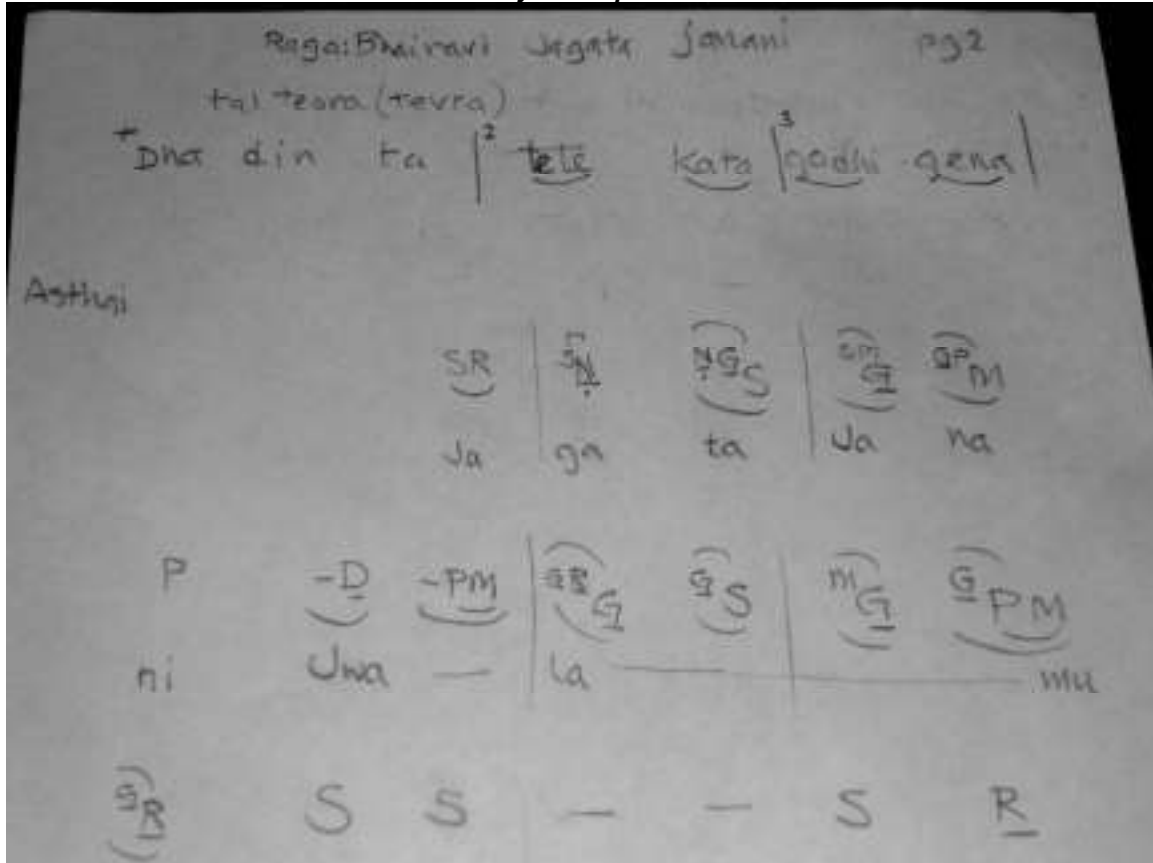 Raga: Bhairavi Jagata Janani pg2
tal teora (tevra)
+ Dha din ta | 2 tete kata | 3 gadhi gena |
Asthai
SR | SN NGS | GPM
Ja | ga ta | Ja na
P -D -PM | GRG GS | mG GPM
ni Jwa — | la — mu
SR S S — — S R